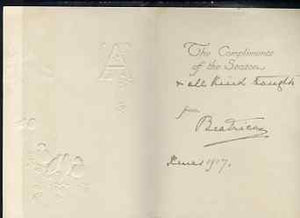 A
The Compliments
of the Season
& all kind thoughts
from
Beatrice
Xmas 1917.